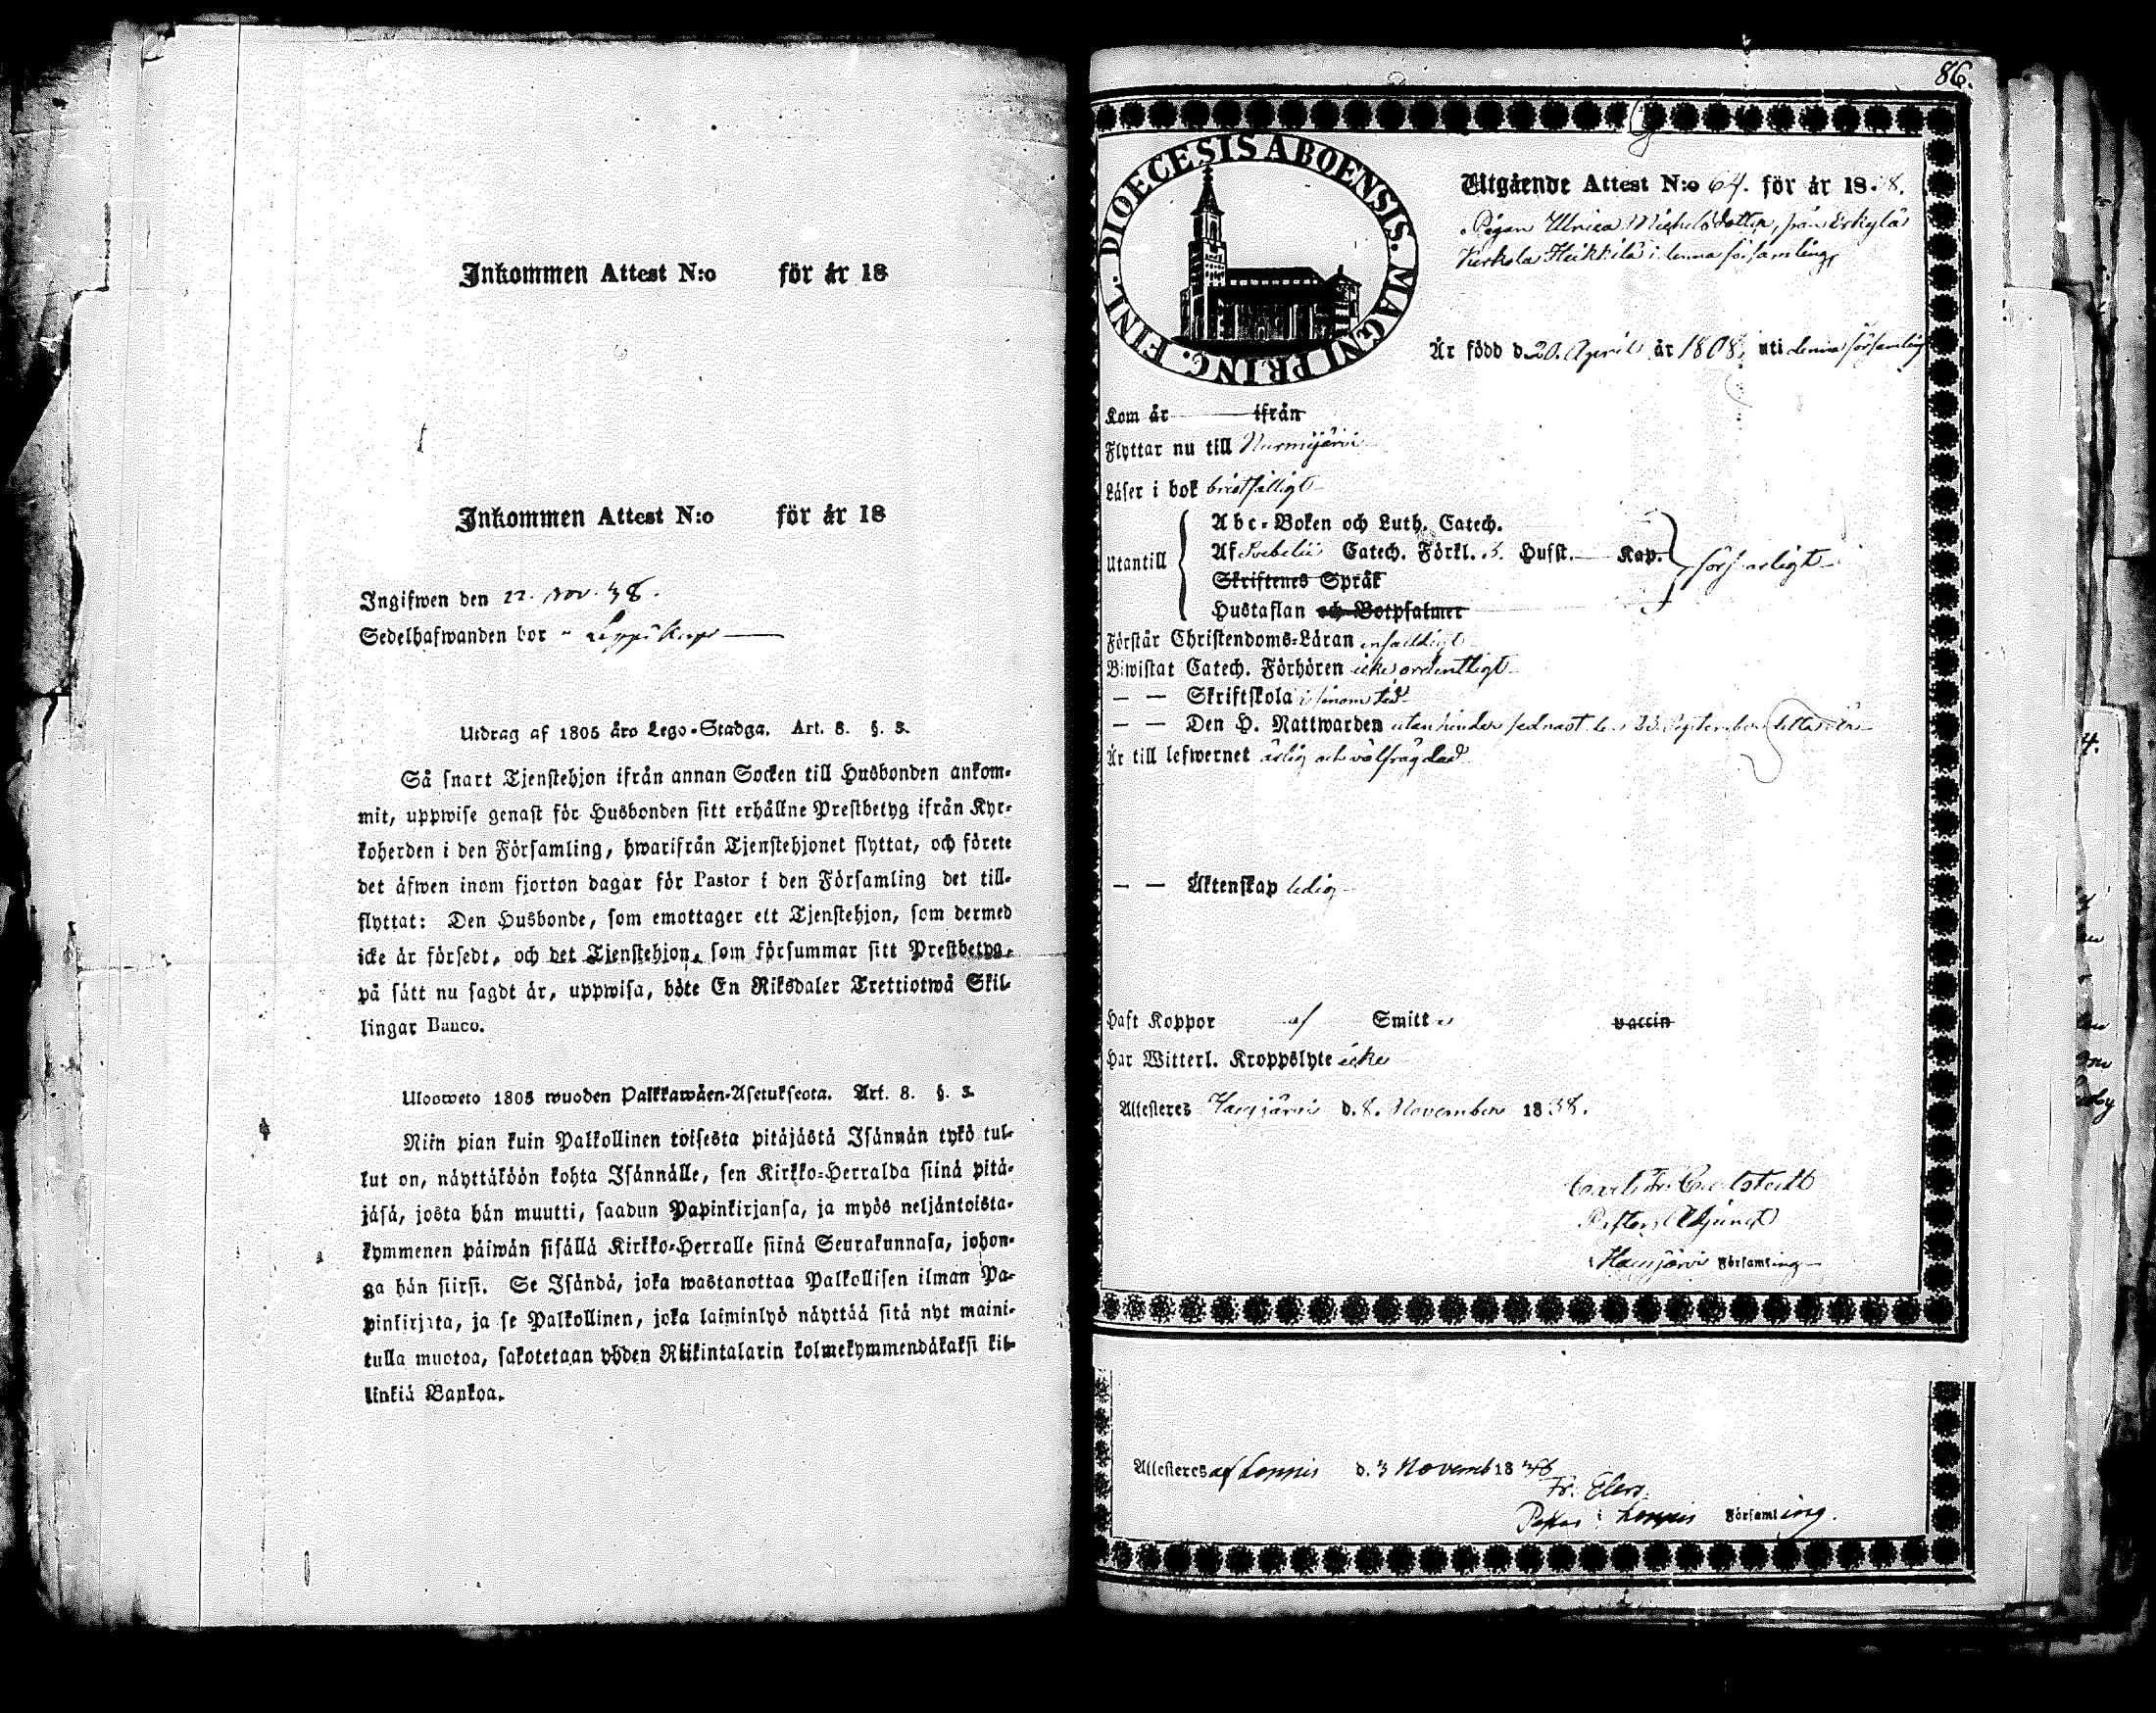 Inkommen Attest N:o för år 18
Inkommen Attest N:o för år 18
Ingifwen den 22. nov. 38.
Sedelhafwanden bor
Utdrag af 1805 års Lego-Stadga. Art. 8. §. 3.
Så snart Tjenstehjon ifrån annan Socken till Husbonden ankom-
mit, uppwise genast för Husbonden sitt erhållne Prestbetyg ifrån Kyr-
koherden i den Församling, hwarifrån Tjenstehjonet flyttat, och förete
det äfwen inom fjorton dagar för Pastor i den Församling det till-
flyttat: Den Husbonde, som emottager ett Tjenstehjon, som dermed
icke är försedt, och det Tjenstehjon, som försummar sitt Prestbetyg,
på sätt nu sagdt är, uppwisa, böte En Riksdaler Trettiotwå Skil-
lingar Banco.
Ulosweto 1805 wuoden Palkkawäen-Asetuksesta. Art. 8. §. 3.
Niin pian kuin Palkollinen toisesta pitäjästä Isännän tykö tul-
lut on, näyttäköön kohta Isännälle, sen Kirkko-Herralda siinä pitä-
jäsä, josta hän muutti, saadun Papinkirjansa, ja myös neljäntoista-
kymmenen päiwän sisällä Kirkko-Herralle siinä Seurakunnasa, johon-
ga hän siirsi. Se Isändä, joka wastanottaa Palkollisen ilman Pa-
pinkirjata, ja se Palkollinen, joka laiminlyö näyttää sitä nyt maini-
tulla muotoa, sakotetaan yhden Riikintalarin kolmekymmendäkaksi kil-
linkiä Bankoa.
86.
DIOECESIS ABOENSIS. MAGNI PRINC. FINL.
Utgående Attest N:o 64. för år 1838.
Pigan Ulrica Michelsdotter, från Erkylä
Kerkola Heikkilä i denna församling,
Är född d. 20. April år 1808. uti denna församling
Kom år ifrån
Flyttar nu till Nurmijärvi
Läser i bok bristfälligt
Utantill
Abc-Boken och Luth. Catech.
Af Svebelii Catech. Förkl. 3. Husst. Kap.
Skriftenes Språk
Hustaflan och Botpsalmer
försvarligt
Förstår Christendoms-Läran enfaldigt
Biwistat Catech. Förhören icke ordentligt
— — Skriftskola i sinom tid
— — Den H. Nattwarden utan hinder sednast den 23. September detta år
Är till lefwernet ärlig och välfrägdad
— — Äktenskap ledig
Haft Koppor af Smitta vaccin
Har Witterl. Kroppslyte icke
Attesteres Hausjärvi d. 8. November 1838.
Pastors Adjunct
i Hausjärvi Församling
Attesteres af Loppis d. 3 Novemb 1838
Fr. Elers.
Pastor i Loppis Församling.